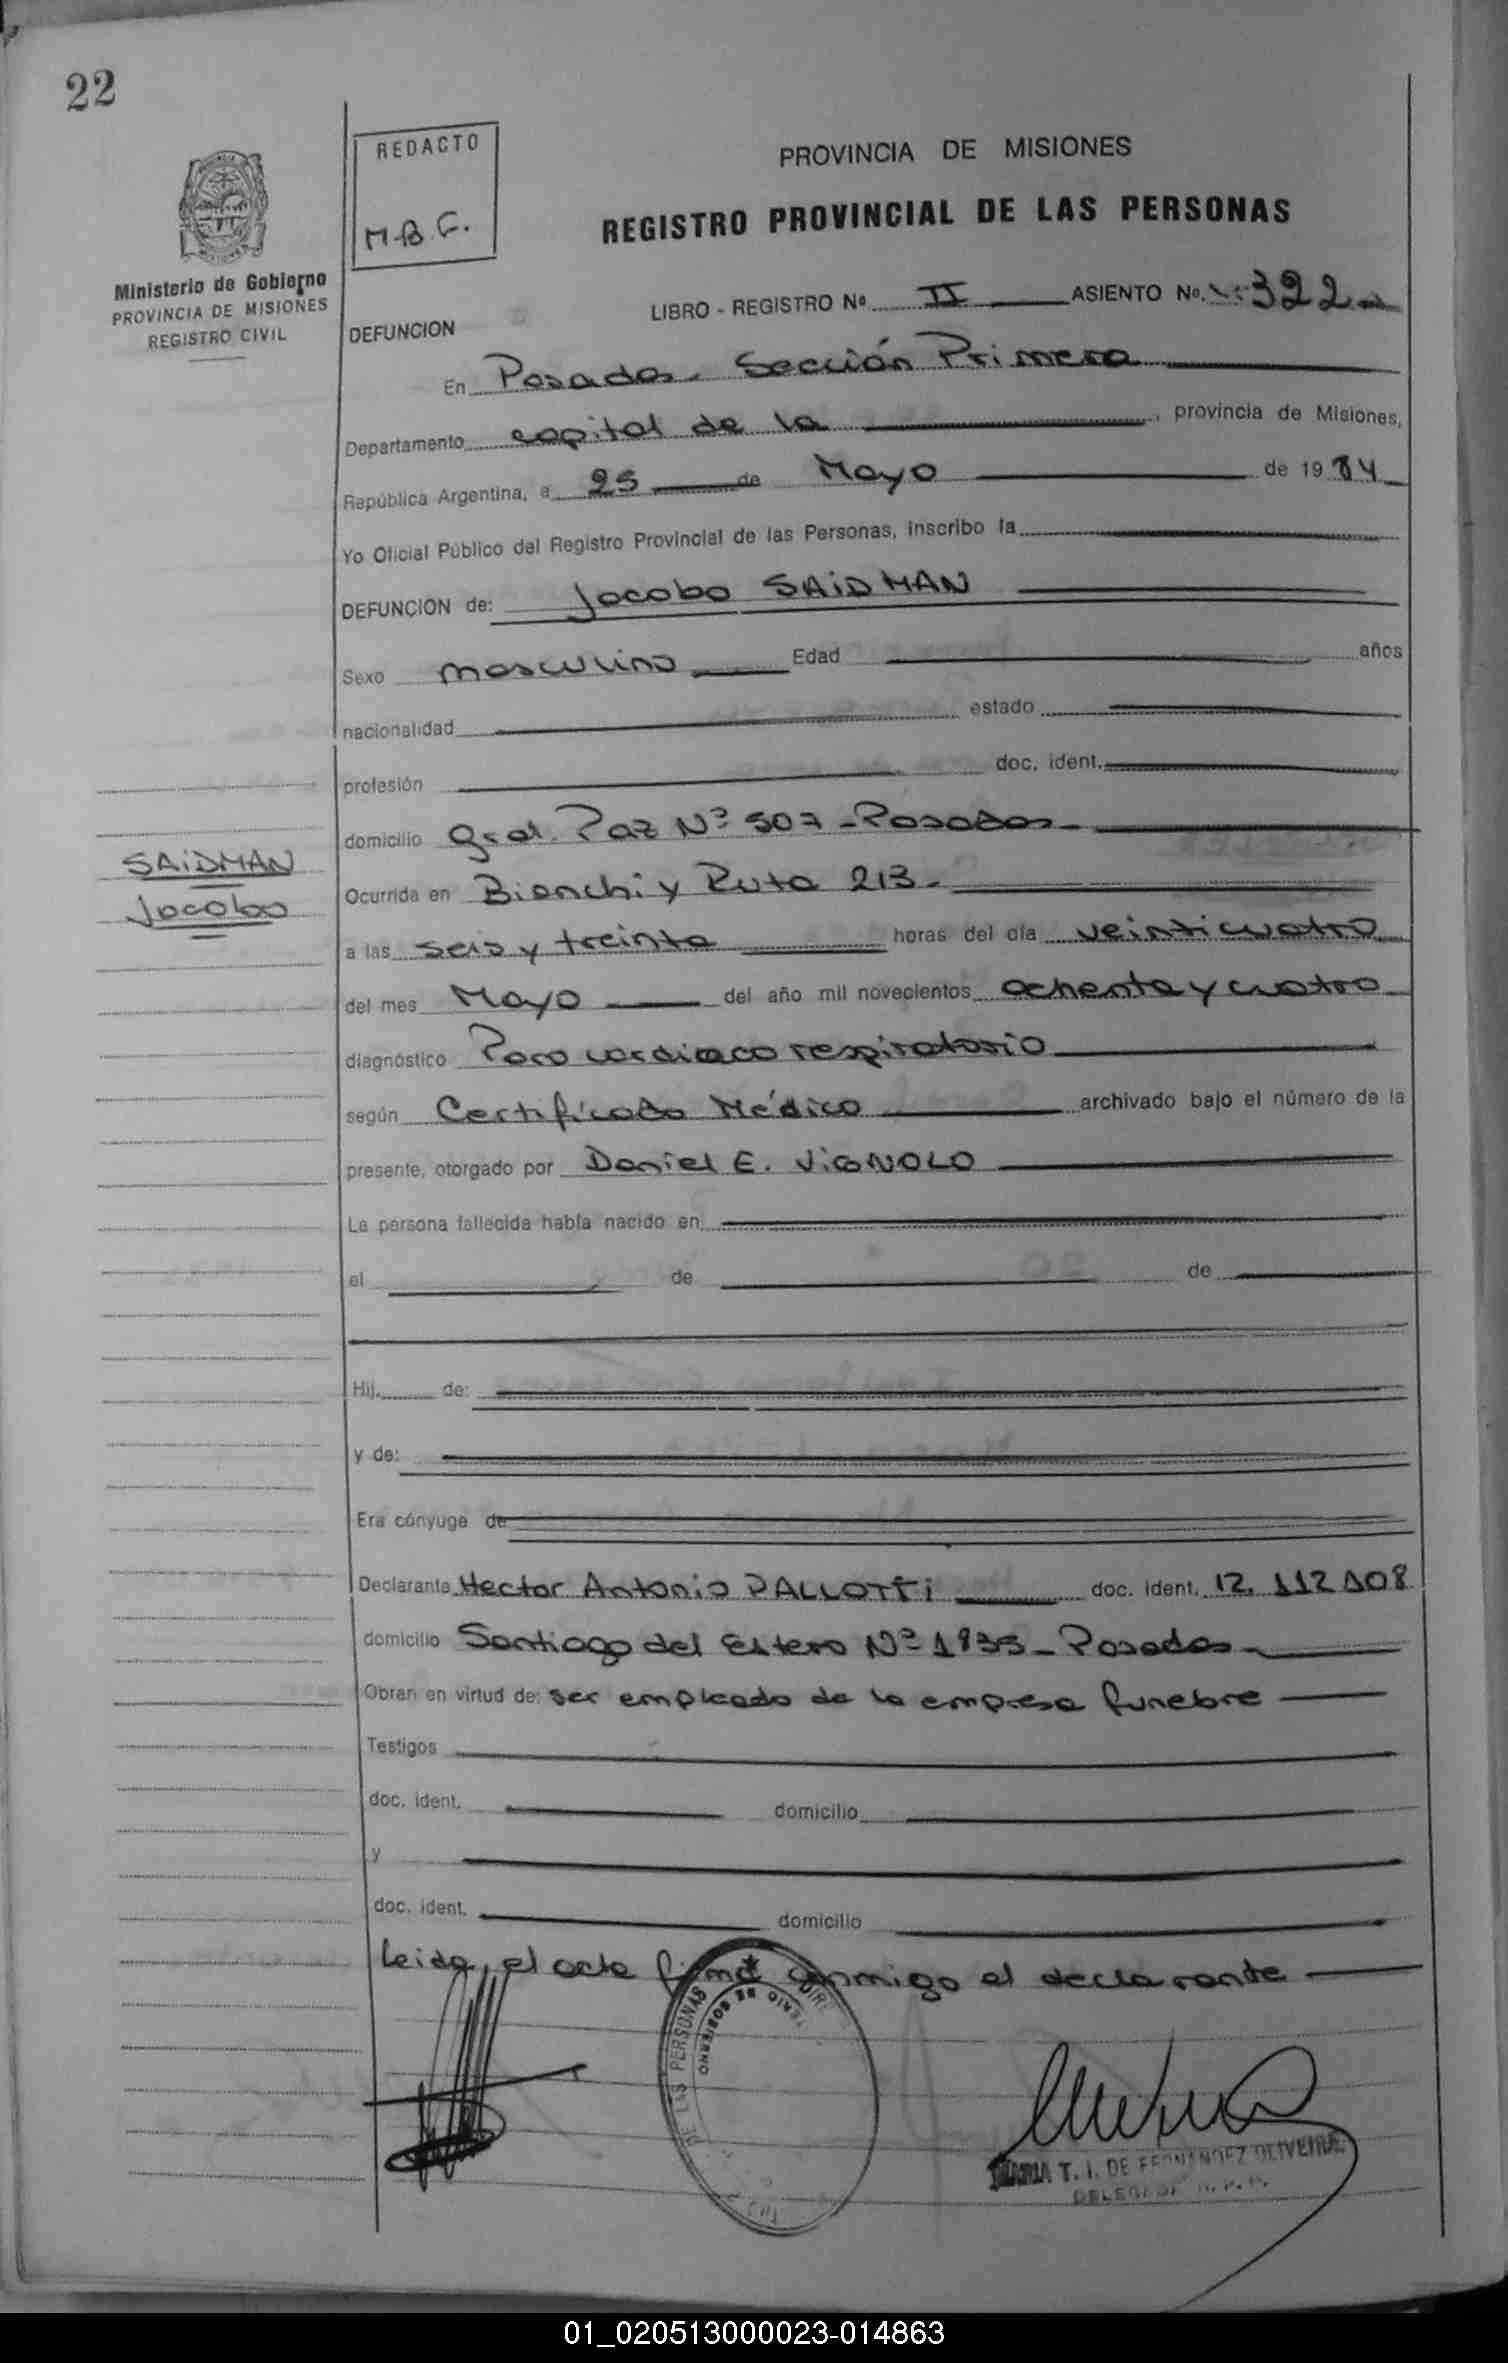 22
REDACTO
M.B.F.
PROVINCIA DE MISIONES
REGISTRO PROVINCIAL DE LAS PERSONAS
Ministerio de Gobierno
PROVINCIA DE MISIONES
REGISTRO CIVIL
LIBRO - REGISTRO Nº II ASIENTO Nº 322
DEFUNCION
En Posadas. Sección Primera
Departamento capital de la , provincia de Misiones,
República Argentina, a 25 de Mayo de 1984
Yo Oficial Público del Registro Provincial de las Personas, inscribo la
DEFUNCION de: Jacobo SAIDMAN
Sexo masculino Edad años
nacionalidad estado
profesión doc. ident.
domicilio Gral. Paz Nº 507 - Posadas -
SAIDMAN
Jacobo
Ocurrida en Bianchi y Ruta 213.
a las seis y treinta horas del día veinticuatro
del mes Mayo del año mil novecientos ochenta y cuatro
diagnóstico Paro cardiaco respiratorio
según Certificado Médico archivado bajo el número de la
presente, otorgado por Daniel E. VIGNOLO
La persona fallecida había nacido en
el de de
Hij de:
y de:
Era cónyuge de
Declarante Hector Antonio PALLOTTI doc. ident. 12.112.108
domicilio Santiago del Estero Nº 1835 - Posadas -
Obran en virtud de: ser empleado de la empresa funebre
Testigos
doc. ident. domicilio
y
doc. ident. domicilio
Leida, el acta firma conmigo el declarante
DE LAS PERSONAS
DE GOBIERNO
MARIA T. I. DE FERNANDEZ OLIVEIRA
01_020513000023-014863